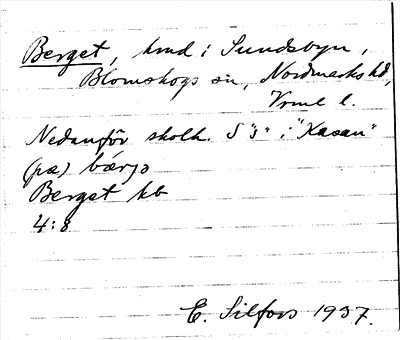 Berget, hmd i Sundsbyn,
Blomskogs sn, Nordmarks hd,
Vrml l.
Nedanför skolh. S "s" i "Kasan"
(pæ) bærjə
Berget kb
4:8
E. Silfors 1937.